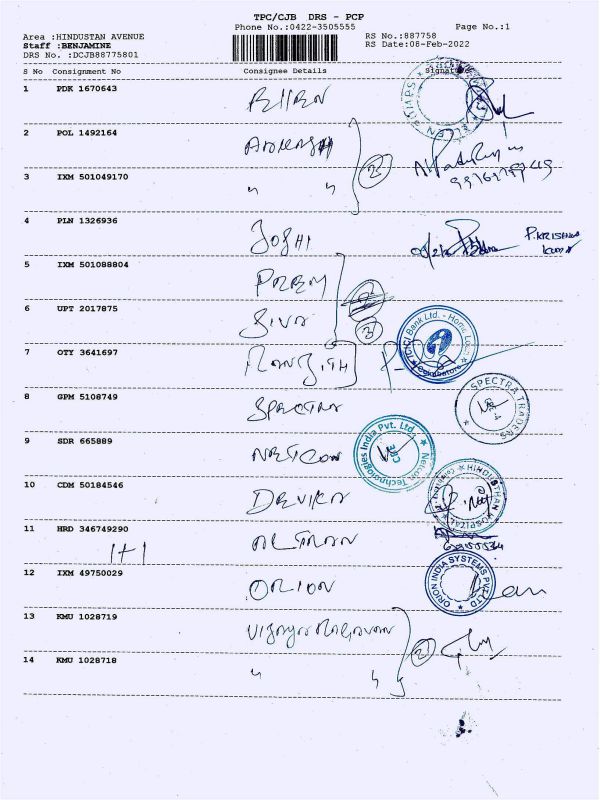 TPC/CJB DRS - PCP
Phone No.:0422-3505555 Page No.:1
Area :HINDUSTAN AVENUE RS No.:887758
Staff :BENJAMINE RS Date:08-Feb-2022
DRS No. :DCJB88775801
S No Consignment No Consignee Details Signature
1 PDK 1670643
2 POL 1492164
3 IXM 501049170 " "
(2)
4 PLN 1326936 JOSHI P.KRISHNA KUMAR
5 IXM 501088804 PREM
6 UPT 2017875 SIVA
(3)
ICICI Bank Ltd. - Home Loan
Coimbatore
7 OTY 3641697 RANJITH
8 GPM 5108749 SPECTRA
SPECTRA TRADERS
9 SDR 665889 NETCON
Netcon Technologies India Pvt. Ltd.
10 CDM 50184546 DEVIKA
HINDUSTHAN HOSPITAL
11 HRD 346749290
1+1
12 IXM 49750029 ORION
ORION INDIA SYSTEMS PVT LTD
13 KMU 1028719 VIJAYARAGAVAN
(2)
14 KMU 1028718 " "